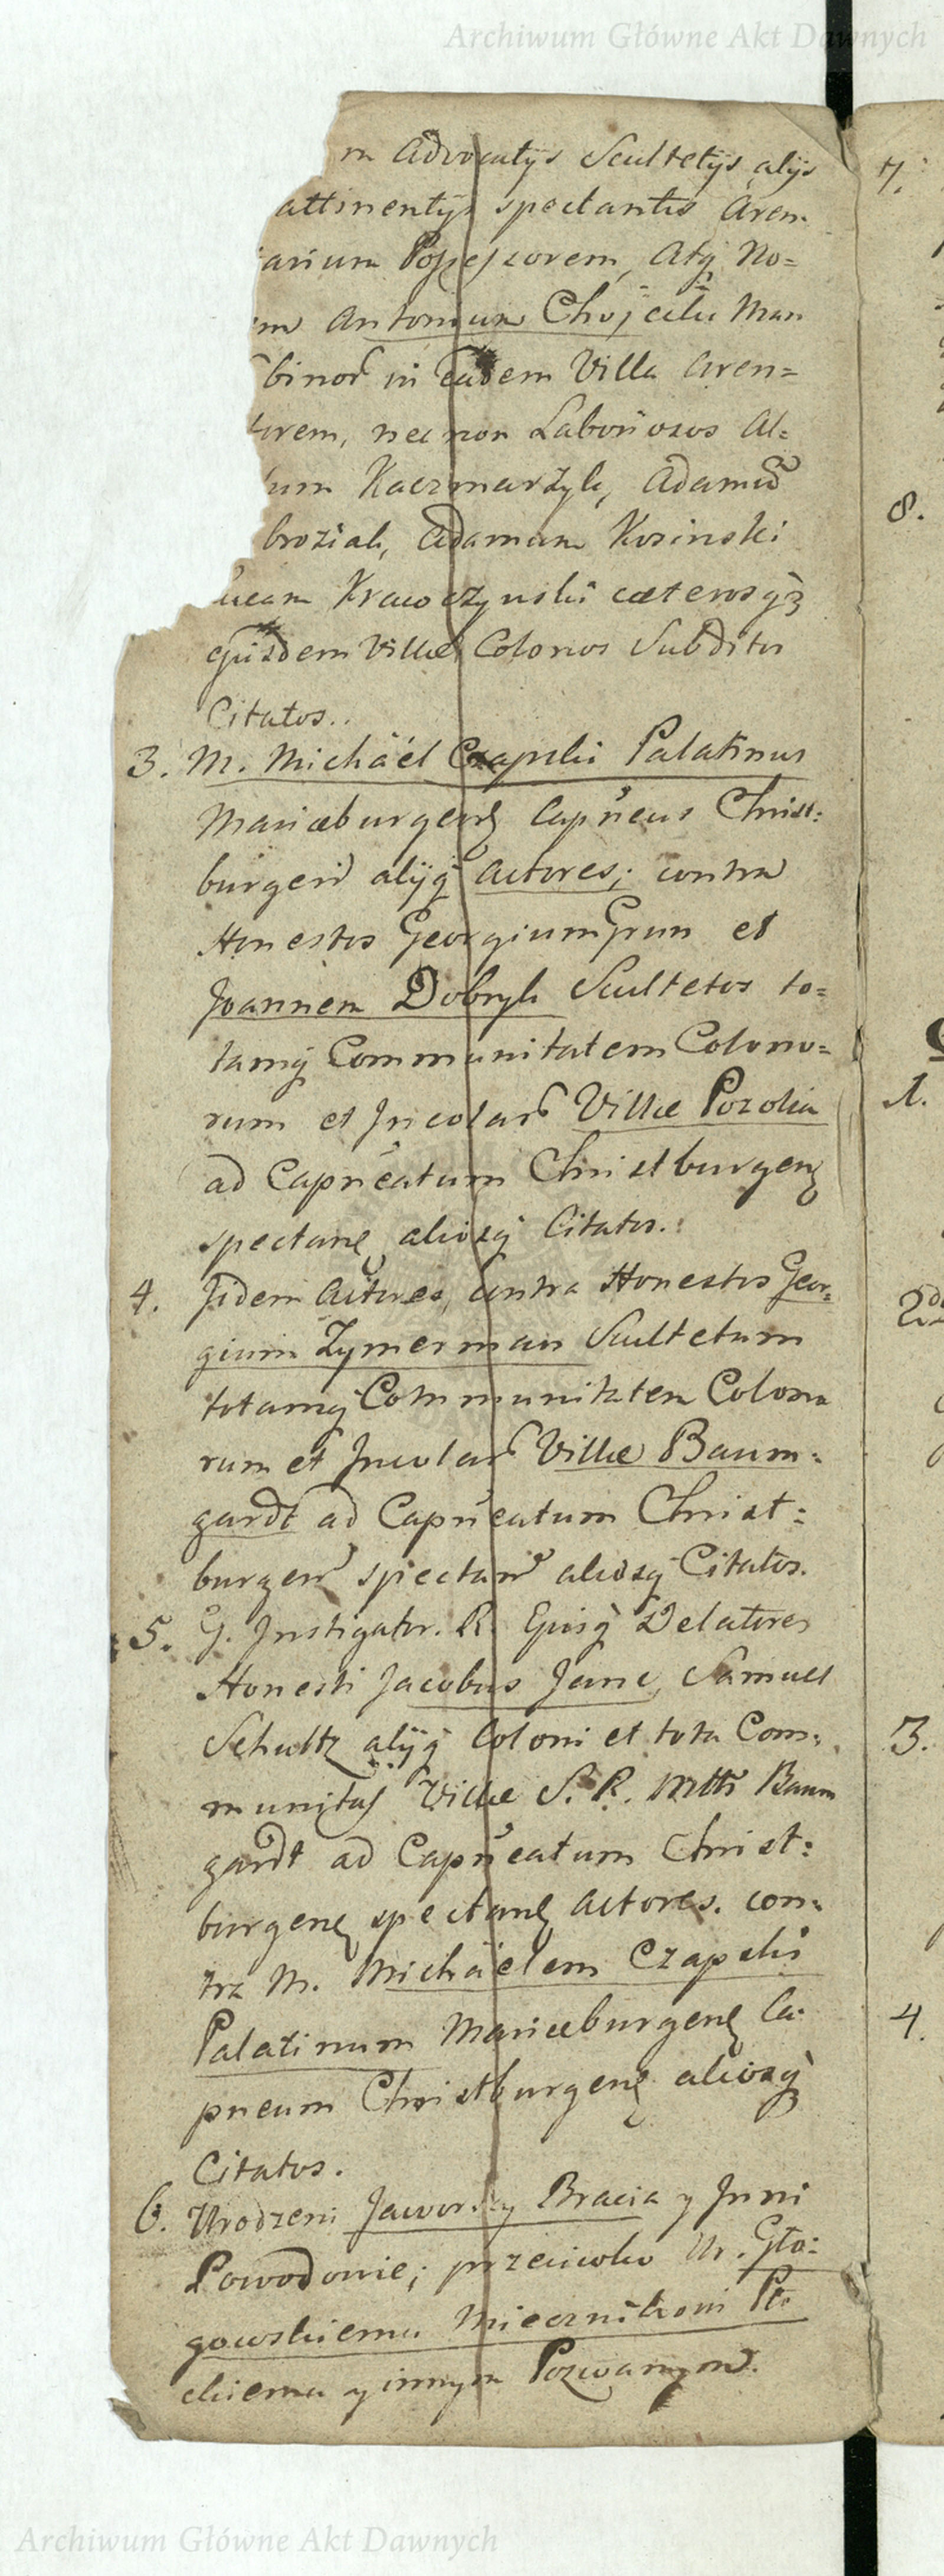 Archiwum Główne Akt Dawnych
m Advocatijs Scultetijs alijs
attinentijs spectantis Aren-
arium Possessorem, Atq No=
m Antonium Chojecki Man
binor in eadem Villa Aren=
torem, nec non Laboriosos Al=
um Kaczmarzyk, Adamu
broziak, Adamum Kosinski
ucam Krawczynski caeterosq3
ejusdem Villae Colonos Subditos
Citatos..
3. M. Michäel Czapski Palatinus
Mariaeburgens Capneus Christ:
burgen alijq Actores; contra
Honestos Georgium Grun et
Joannem Dobryk Scultetos to=
tamq Communitatem Colono=
rum et Incolar Villae Pozolia
ad Capneatum Christburgens
spectane aliosq Citatos.
4. Iidem Actores, contra Honestos Geor=
gium Zymerman Scultetum
totamq Communitatem Colono
rum et Incolar Villae Baum=
gardt ad Capneatum Christ=
burgen spectan aliosq Citatos.
5. G. Instigator. R. Ejusq Delatores
Honesti Jacobus Janc, Samuel
Schultz alijq Coloni et tota Com=
munitas Villae S. R. Mttis Baum
gardt ad Capneatum Christ=
burgens spectans Actores. con=
tra M. Michäelem Czapski
Palatinum Mariaeburgens Ca=
pneum Christburgens aliosq
Citatos.
6. Urodzeni Jaworscy Bracia y Inni
Powodowie; przeciwko Ur. Gło=
gowskiemu Miecznikowi Pło
ckiemu y innym Pozwanym.
7.
8.
1.
2do
3.
4.
Archiwum Główne Akt Dawnych